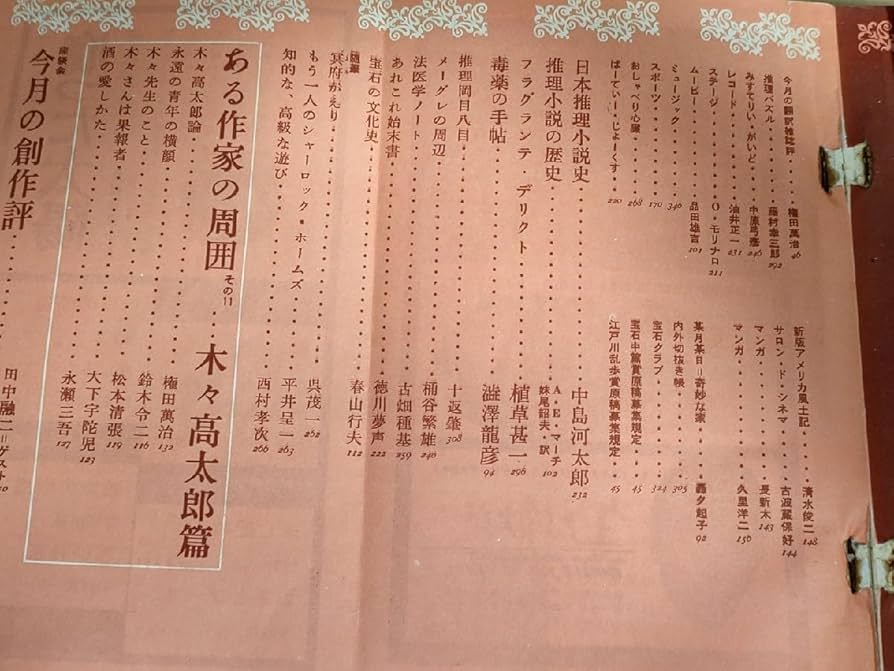 今月の翻訳雑誌評……権田萬治 46
推理パズル……藤村幸三郎 292
みすてりい・がいど……中原弓彦 246
レコード……油井正一 231
ステージ……O・モリナロ 211
ムービー……品田雄吉 101
ミュージック……346
スポーツ……170
おしゃべり心臓……268
ぱーてぃー・じょーくす……220
新版アメリカ風土記……清水俊二 148
サロン・ド・シネマ……古波蔵保好 144
マンガ……長新太 143
マンガ……久里洋二 156
某月某日=奇妙な家……夕起子 92
内外切抜き帳……305
宝石クラブ……324
宝石中篇賞原稿募集規定……45
江戸川乱歩賞原稿募集規定……45
日本推理小説史……中島河太郎 232
推理小説の歴史……A・E・マーチ 妹尾韶夫・訳 102
毒薬の手帖……澁澤龍彦 94
フラグランテ・デリクト……植草甚一 296
推理岡目八目……十返肇 308
メーグレの周辺……桶谷繁雄 240
法医学ノート……古畑種基 259
あれこれ始末書……徳川夢声 222
宝石の文化史……春山行夫 112
随筆
冥府がえり……呉茂一 262
もう一人のシャーロック・ホームズ……平井呈一 263
知的な、高級な遊び……西村孝次 266
ある作家の周囲 その11……木々高太郎篇
木々高太郎論……権田萬治 132
永遠の青年の横顔……鈴木令二 116
木々先生のこと……松本清張 119
木々さんは果報者……大下宇陀児 123
酒の愛しかた……永瀬三吾 127
座談会
今月の創作評……田中融二=ゲスト